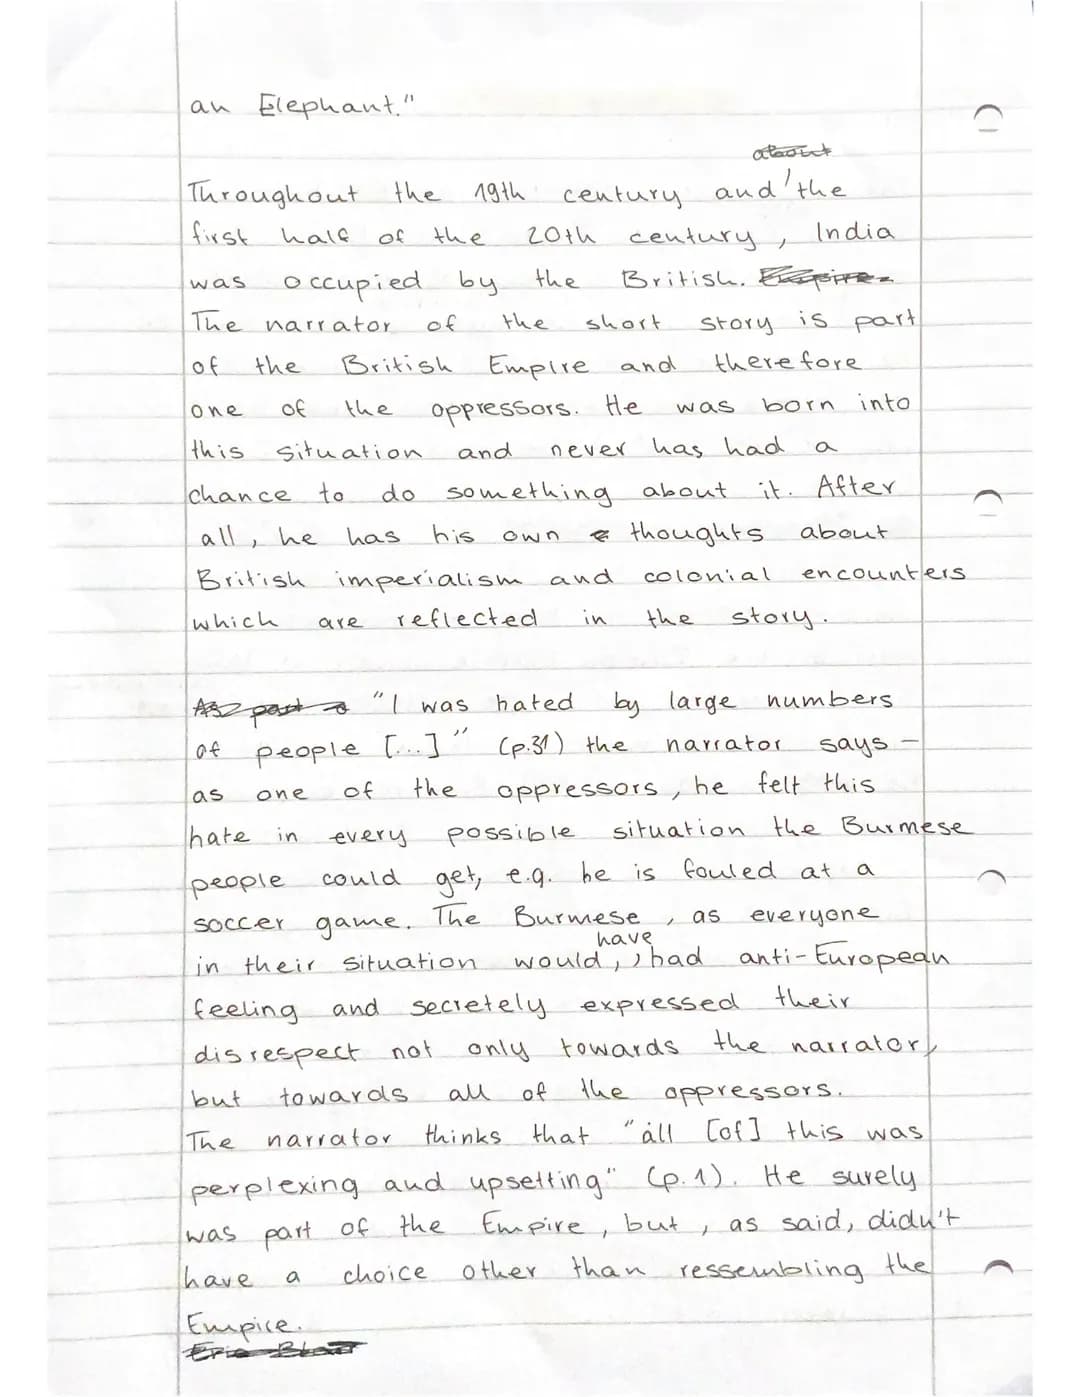 an Elephant."
about
Throughout the 19th century and the
first half of the 20th century, India
was occupied by the British. Empire.
The narrator of the short story is part
of the British Empire and therefore
one of the oppressors. He was born into
this situation and never has had a
chance to do something about it. After
all, he has his own thoughts about
British imperialism and colonial encounters
which are reflected in the story.
As part "I was hated by large numbers
of people [...]" (p.31) the narrator says –
as one of the oppressors, he felt this
hate in every possible situation the Burmese
people could get, e.g. he is fouled at a
soccer game. The Burmese, as everyone
have
in their situation would, had anti-European
feeling and secretely expressed their
disrespect not only towards the narrator,
but towards all of the oppressors.
The narrator thinks that "all [of] this was
perplexing and upsetting" (p.1). He surely
was part of the Empire, but, as said, didn't
have a choice other than ressembling the
Empire.
Eric Blair